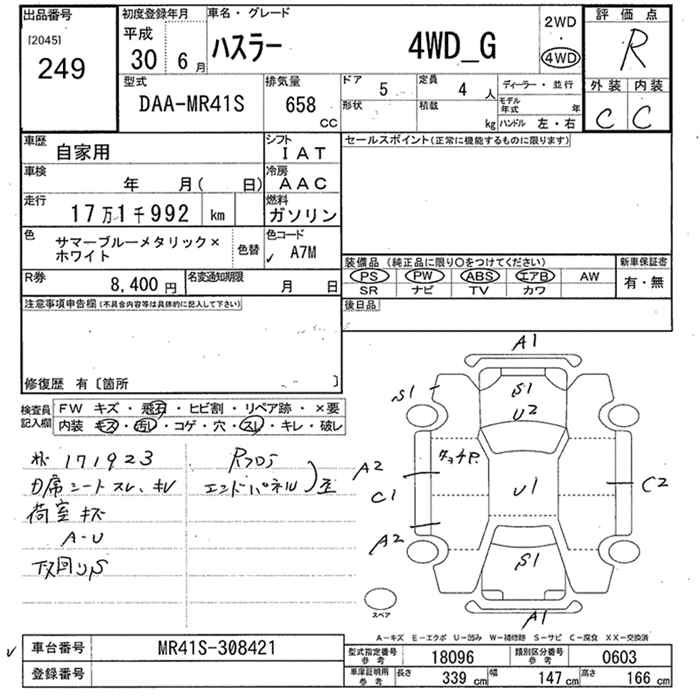 出品番号
[2045]
249
初度登録年月
平成
30 6月
車名・グレード
ハスラー 4WD_G
2WD
・
4WD
評価点
R
外装 内装
C C
型式
DAA-MR41S
排気量
658
CC
ドア 5
定員 4 人
形状
積載 kg
ディーラー・並行
モデル年式 年
ハンドル 左・右
車歴
自家用
シフト
IAT
車検
年 月( 日)
冷房
AAC
走行
17万1千992 km
燃料
ガソリン
色
サマーブルーメタリック×
ホワイト
色替
色コード
A7M
R券
8,400 円
名変通知期限
月 日
セールスポイント(正常に機能するものに限ります)
装備品 (純正品に限り○をつけてください)
PS PW ABS エアB AW
SR ナビ TV カワ
新車保証書
有・無
後日品
注意事項申告欄(不具合内容等は具体的に記入して下さい)
修復歴 有〔箇所 〕
検査員
記入欄
FW キズ・飛石・ヒビ割・リペア跡・×要
内装・キズ・汚れ・コゲ・穴・スレ・キレ・破レ
171923
席シートスレ、キレ
荷室キズ
A-U
下廻りS
Rフロア
エンドパネル
A1
S1
S1
U2
A2
C1
U1
C2
A2
S1
A1
スペア
A-キズ E-エクボ U-凹み W-補修跡 S-サビ C-腐食 XX-交換済
車台番号
MR41S-308421
登録番号
型式指定番号
参考
18096
類別区分番号
参考
0603
車庫証明用
参考
長さ 339 cm
幅 147 cm
高さ 166 cm